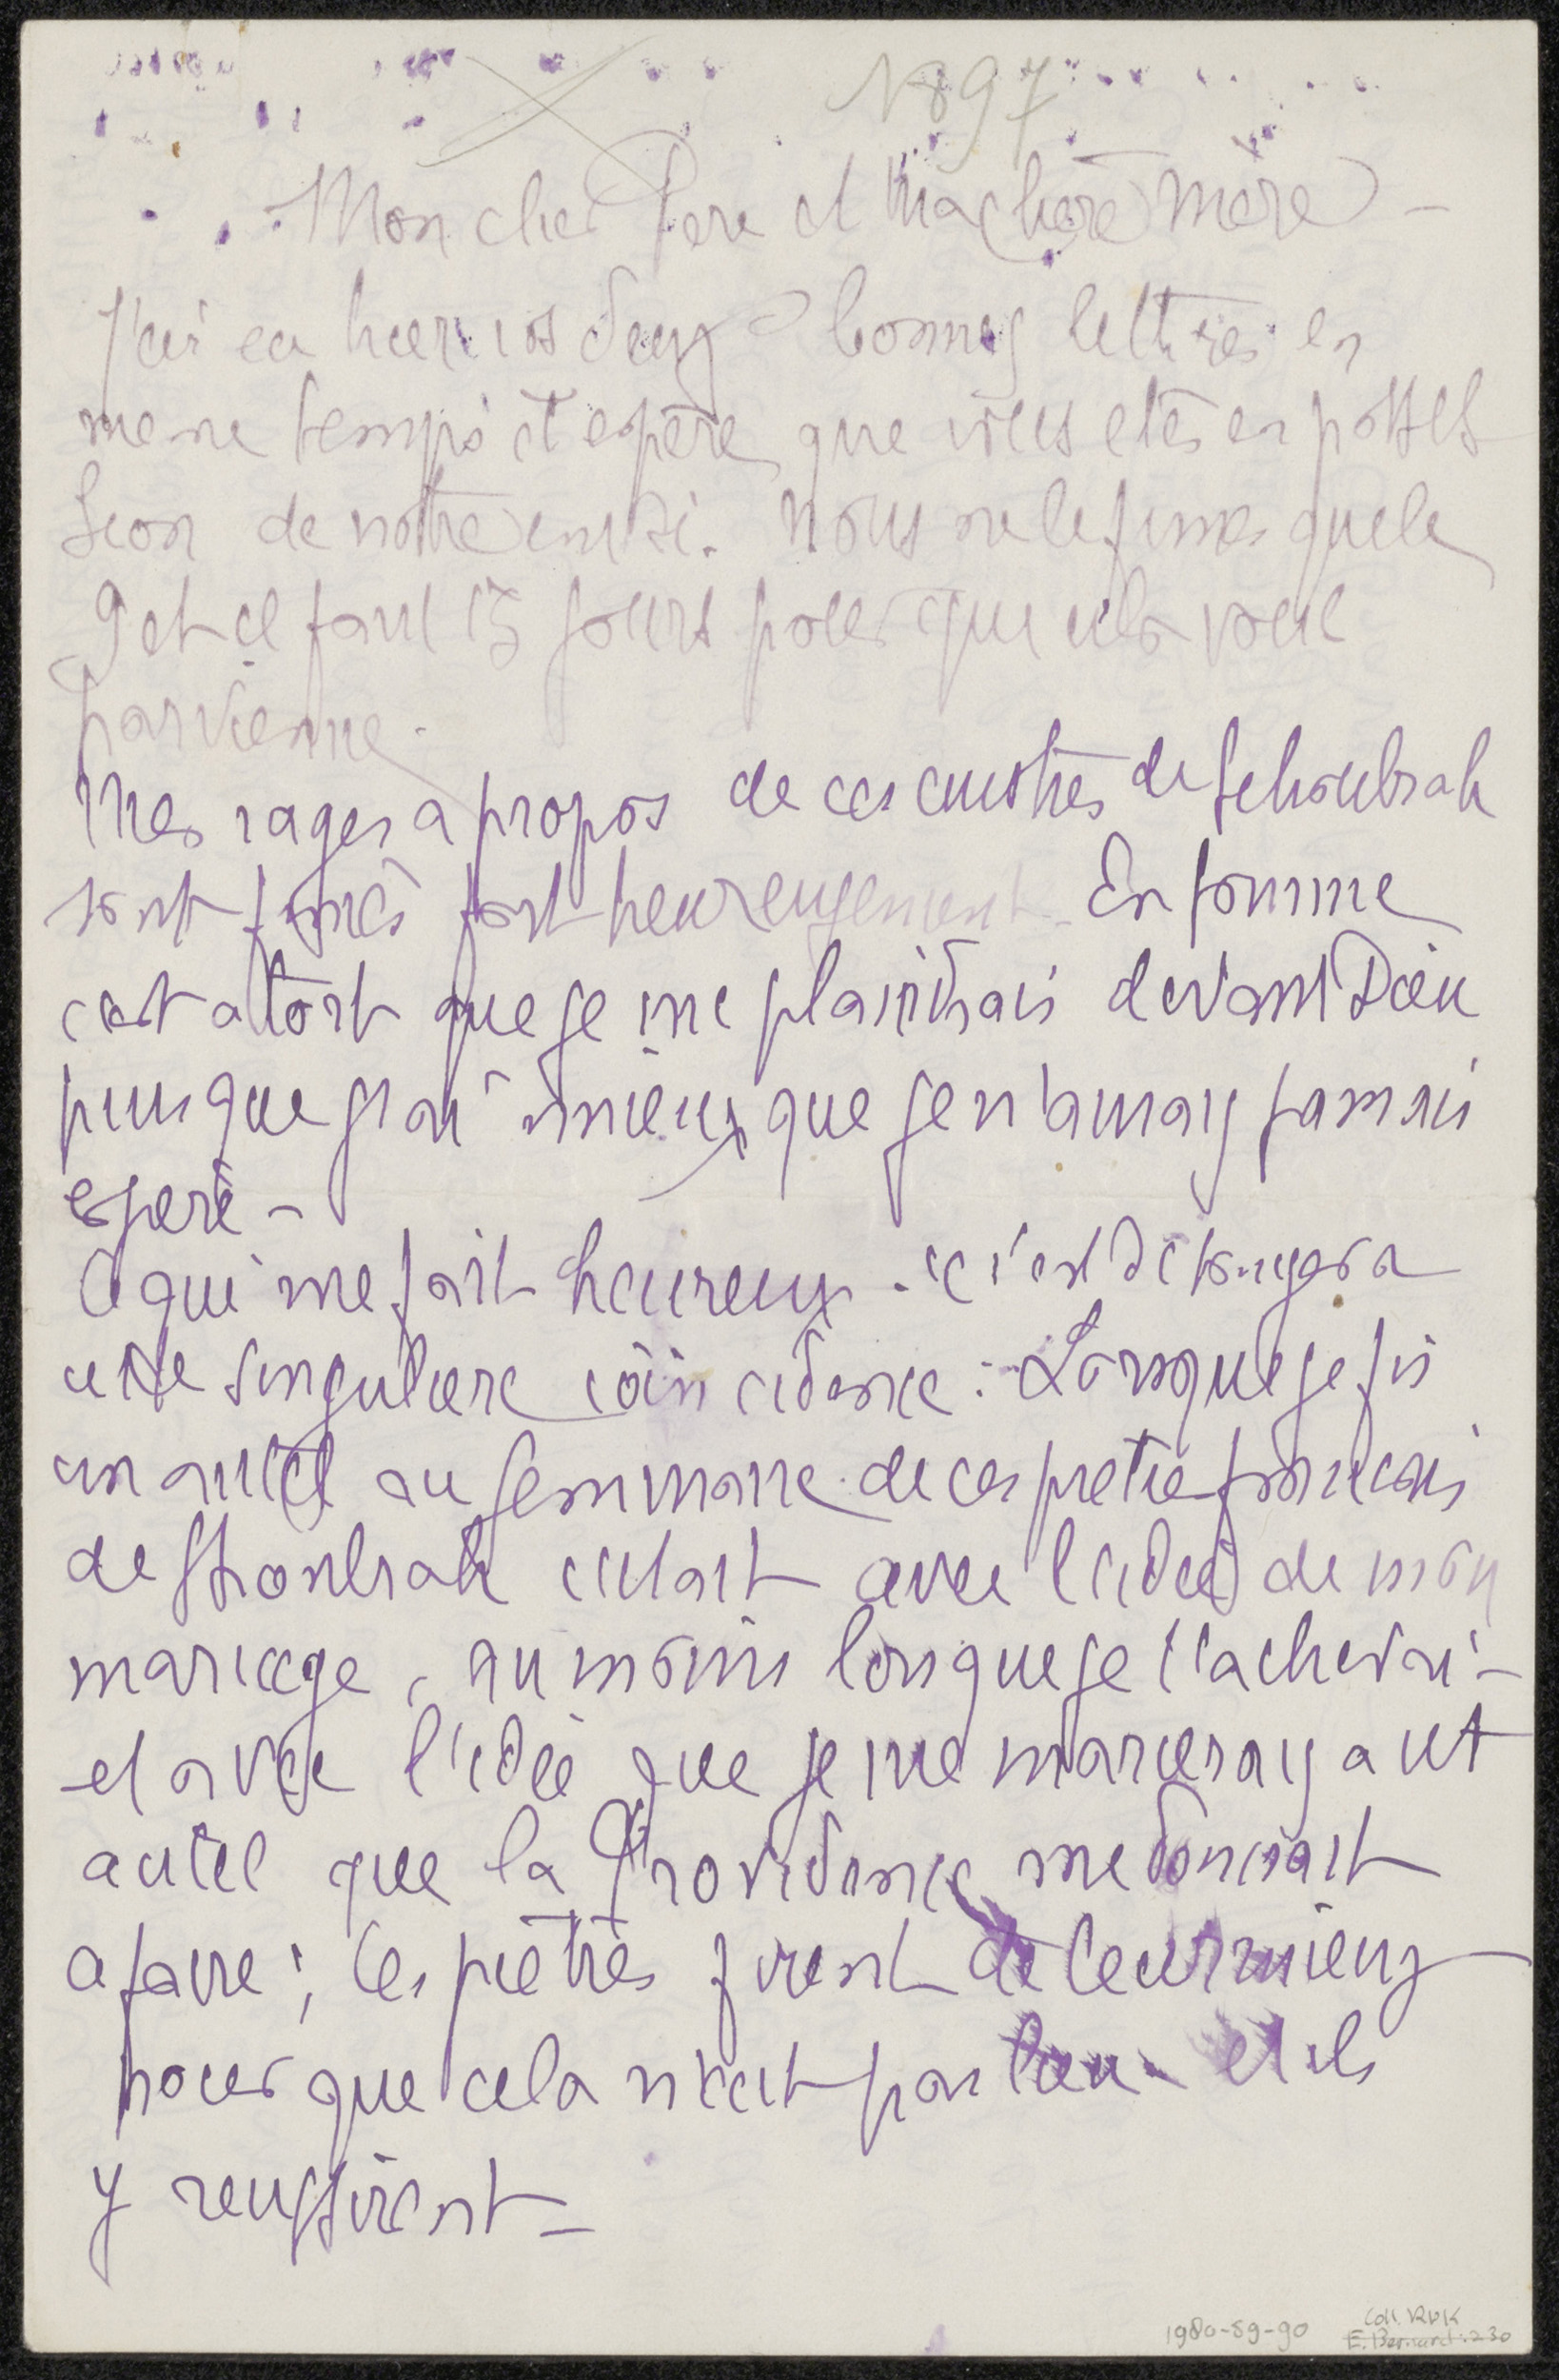 1897
Mon cher Père et ma chère mère –
J'ai eu hier vos deux bonnes lettres en
meme temps et espère que vous etes en posses
sion de notre envoi. Nous ne le fimes que le
9 et il faut 15 jours pour que cela vous
parvienne.
Mes rages a propos de ces cuistres de Schoubrah
sont finies fort heureusement. En somme
c'est a tort que je me plaindrais devant Dieu
puis que j'ai mieux que je n'auray jamais
esperé –
Ce qui me fait heureux . c'est de songer a
cette singuliere coincidence : Lorsque je fis
un autel au seminaire de ces pretres francais
de Shoubrah c'etait avec l'idée de mon
mariage, au moins lorsque je l'achevai –
et avec l'idée que je me marieray a cet
autel que la Providence me donnait
a faire ; les prêtres firent de leur mieux
pour que cela n'eut pas lieu. et ils
y reussirent –
1980-59-90
Coll. RBK
E. Bernard: 230